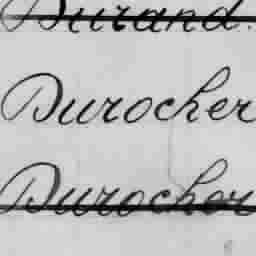 Durand.
Durocher
Durocher